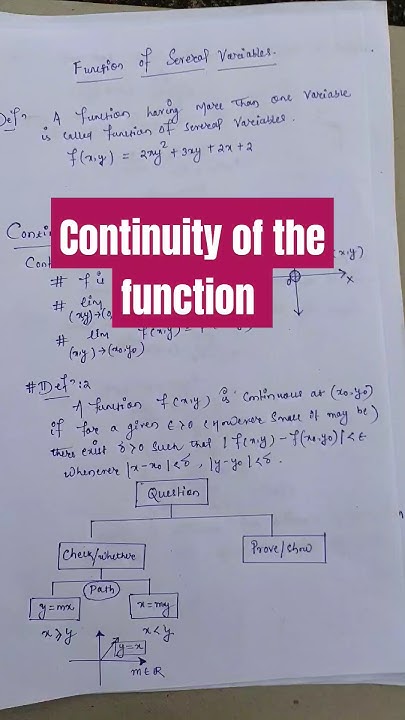 Function of Several Variables.
Defⁿ A function having more than one variable
is called function of several variables.
f(x,y) = 2xy² + 3xy + 2x + 2
Continuity of the
function
x
# f is
# lim
(x,y)→
# lim f(x,y) =
(x,y)→(x₀,y₀)
# II Defⁿ: 2
A function f(x,y) is continuous at (x₀,y₀)
if for a given ε>0 (However small it may be)
there exist δ>0 such that |f(x,y) - f(x₀,y₀)|<ε
whenever |x-x₀|<δ, |y-y₀|<δ.
Question
Check/whether
Prove/show
Path
y=mx
x=my
x≥y
x<y
y=x
m∈R